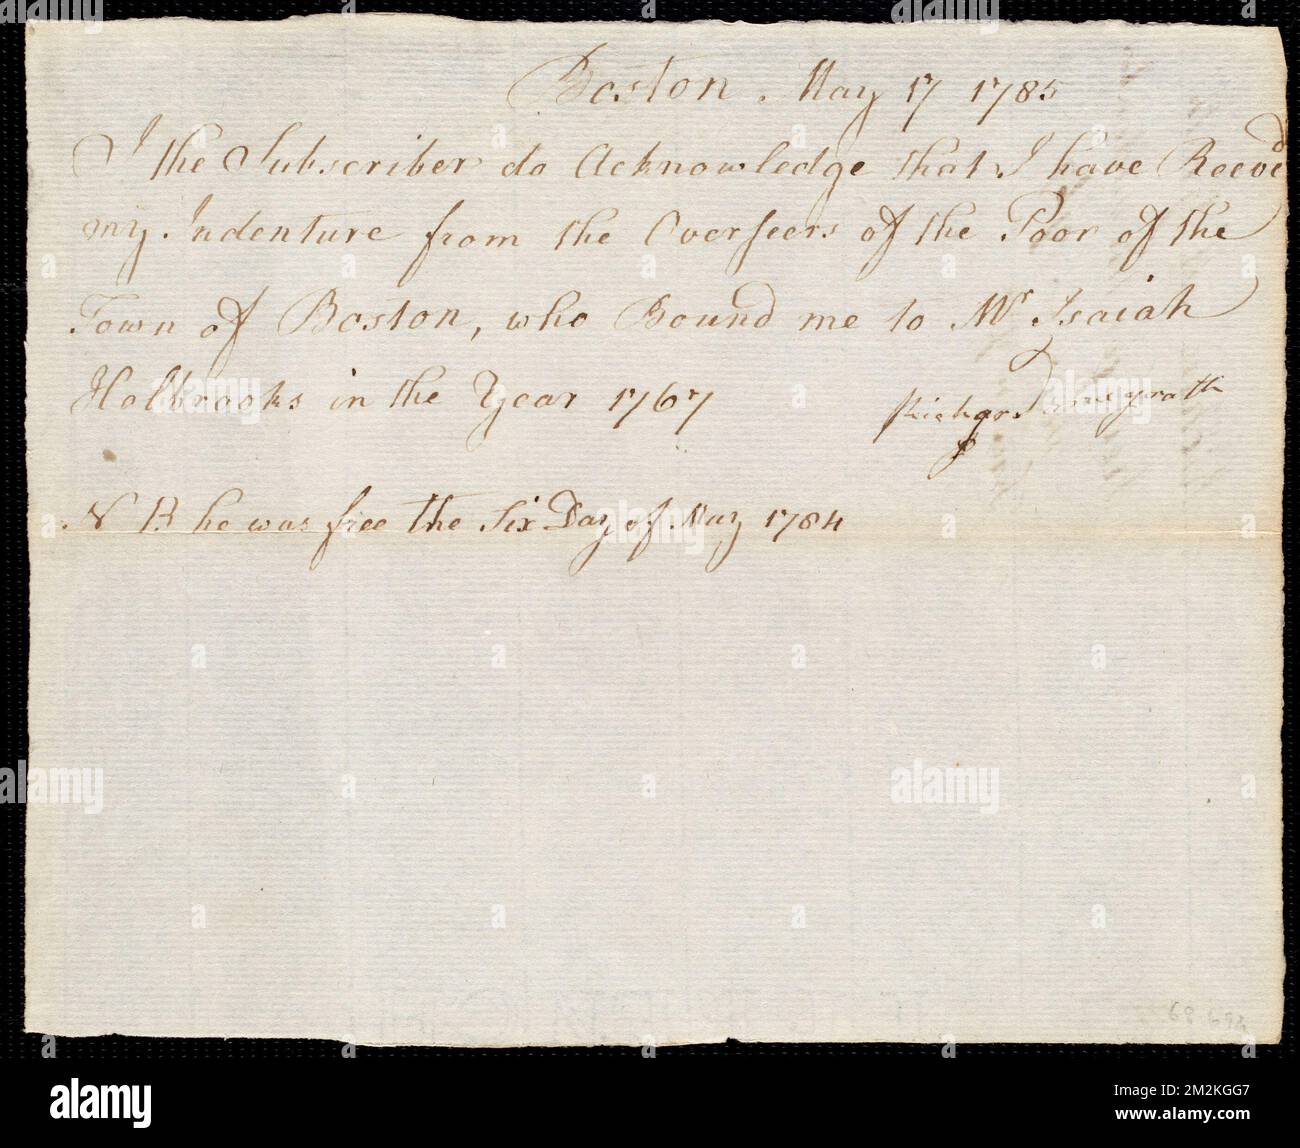 Boston May 17 1785
I the Subscriber do Acknowledge that I have Receved
my Indenture from the Overseers of the Poor of the
Town of Boston, who Bound me to Mr Isaiah
Holbrooks in the Year 1767
Richard
N B he was free the Six Day of May 1784
alamy
alamy
alamy
alamy
alamy
Image ID: 2M2KGG7
www.alamy.com